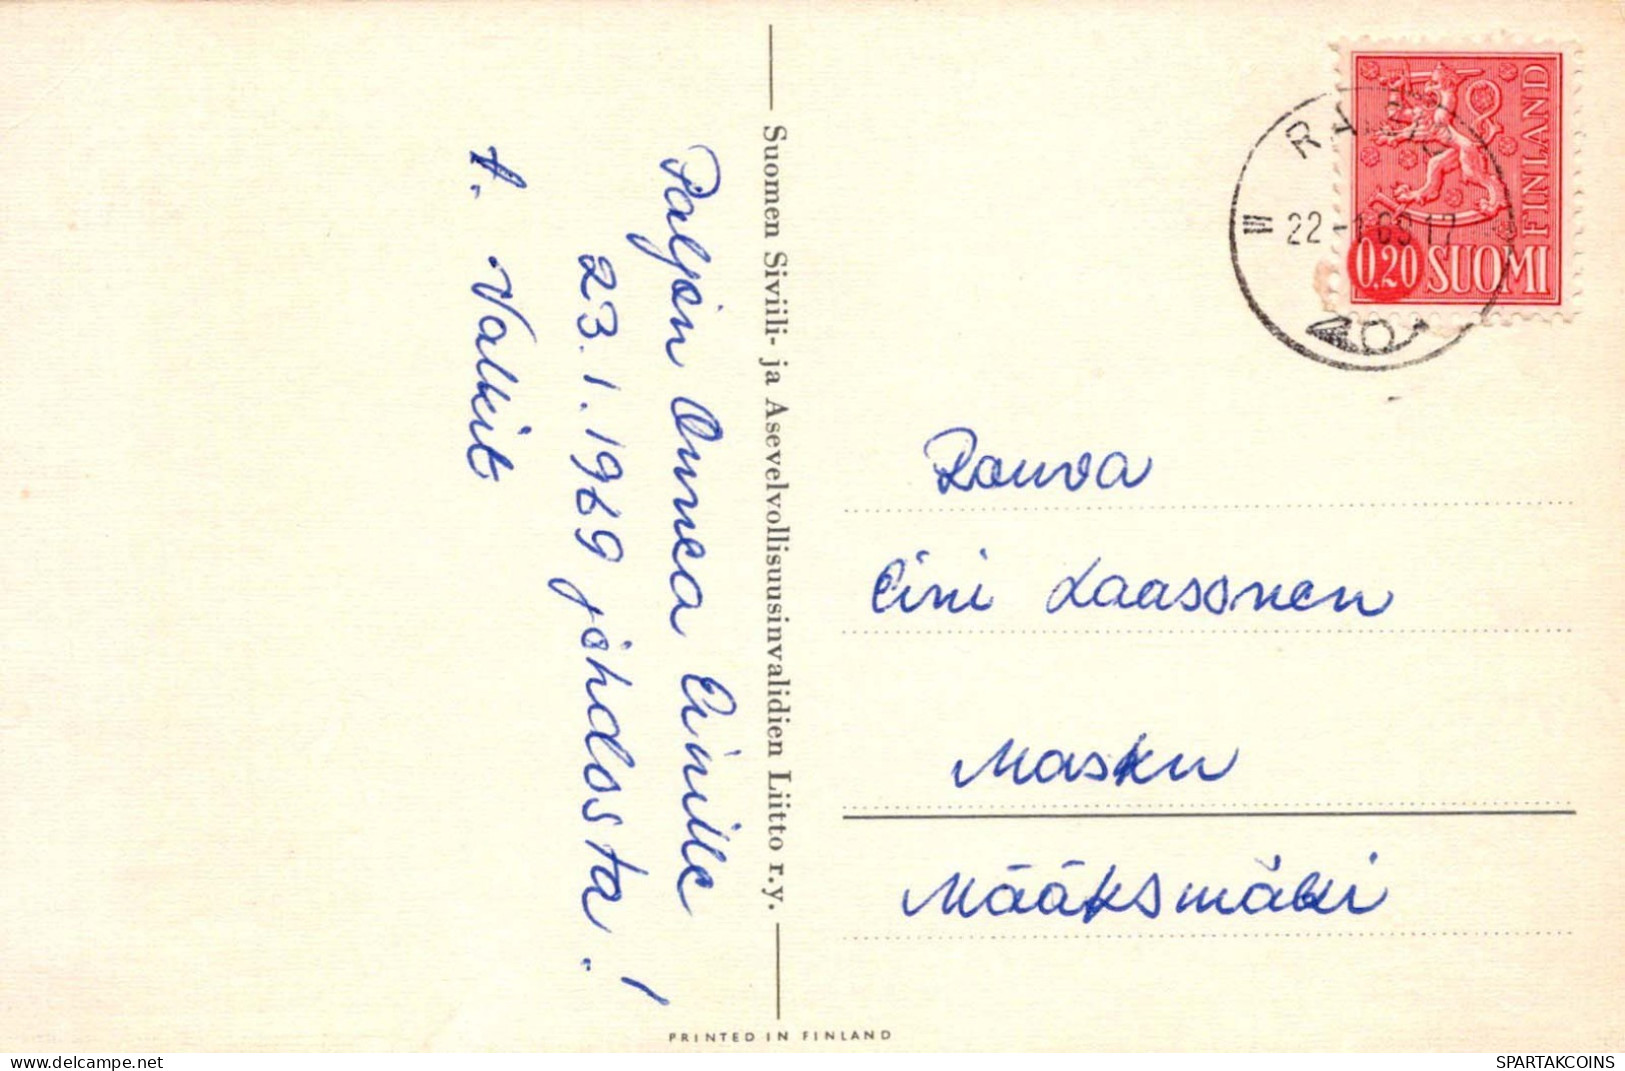 Paljon Onnea Einille
23.1.1969 johdosta.!
t. Valkit
Suomen Siviili- ja Asevelvollisuusinvalidien Liitto r.y.
PRINTED IN FINLAND
FINLAND
0,20 SUOMI
22-1.69 17
Rouva
Eini Laasonen
Masku
Määksmäki
SPARTAKCOINS
delcampe.net